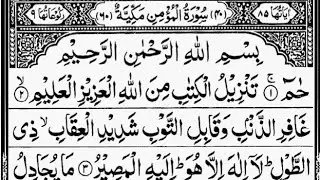 اٰیاتُهَا ۸۵ (۴۰) سُوْرَةُ الْمُؤْمِنِ مَكِّيَّةٌ (۶۰) رُكُوْعَاتُهَا ۹
بِسْمِ اللّٰهِ الرَّحْمٰنِ الرَّحِيْمِ
حٰمٓ ۚ﴿۱﴾ تَنْزِيْلُ الْكِتٰبِ مِنَ اللّٰهِ الْعَزِيْزِ الْعَلِيْمِ ۙ﴿۲﴾
غَافِرِ الذَّنْۢبِ وَقَابِلِ التَّوْبِ شَدِيْدِ الْعِقَابِ ۙ ذِی
الطَّوْلِ ؕ لَاۤ اِلٰهَ اِلَّا هُوَ ؕ اِلَيْهِ الْمَصِيْرُ ﴿۳﴾ مَا يُجَادِلُ